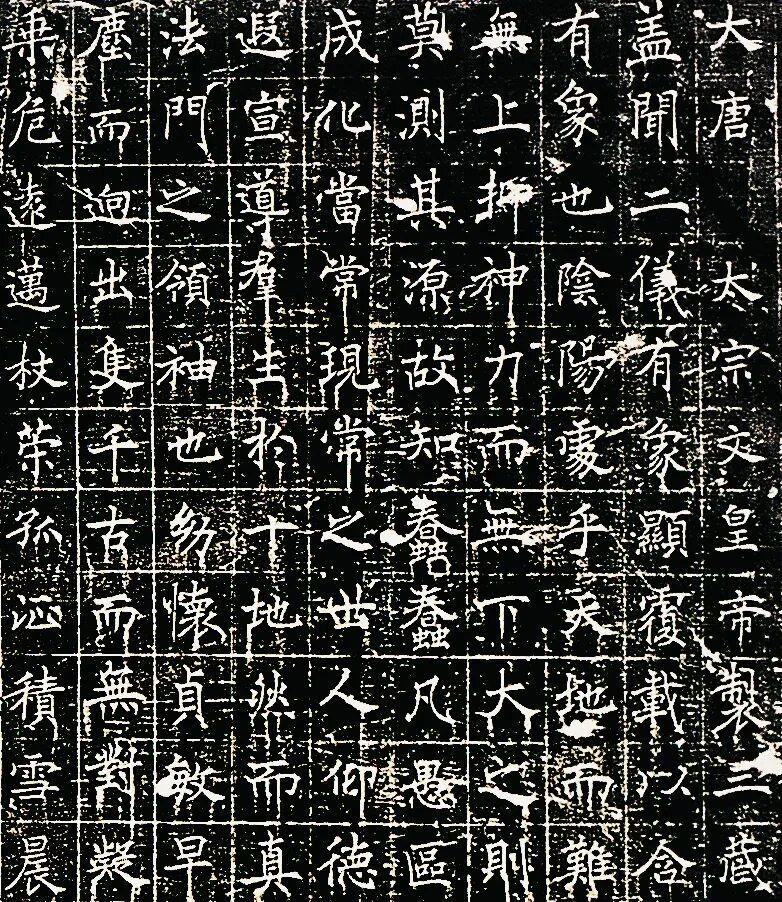 大唐太宗文皇帝製三藏
盖聞二儀有象顯覆載以含
有象也陰陽處乎天地而難
無上抑神力而無下大之則
莫測其源故知蠢蠢凡愚區
成化當常現常之世人仰德
遐宣導羣生於十地然而真
法門之領袖也幼懷貞敏早
塵而迥出隻千古而無對凝
乗危遠邁杖䇿孤征積雪晨